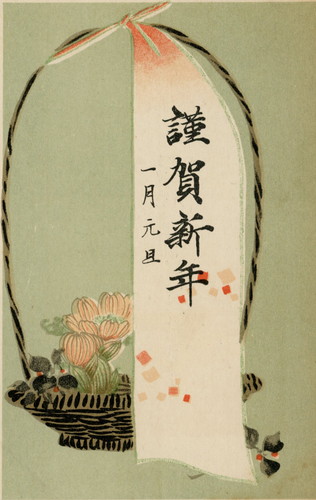 謹賀新年
一月元旦